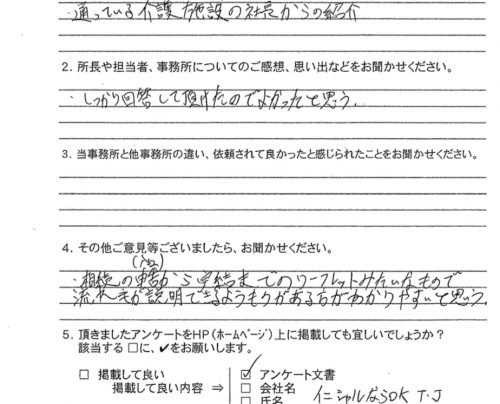 ・通っている介護施設の社長からの紹介
2. 所長や担当者、事務所についてのご感想、思い出などをお聞かせください。
・しっかり回答して頂けたのでよかったと思う。
3. 当事務所と他事務所の違い、依頼されて良かったと感じられたことをお聞かせください。
4. その他ご意見等ございましたら、お聞かせください。
・相続の から完結までのリーフレットみたいなもので
流れ が説明できるようものがある方がわかりやすいと思う。
5. 頂きましたアンケートをHP(ホームページ)上に掲載しても宜しいでしょうか?
該当する □に、✔をお願いします。
□ 掲載して良い
掲載して良い内容 ⇒
☑ アンケート文書
□ 会社名
□ 氏名
イニシャルならOK T・J